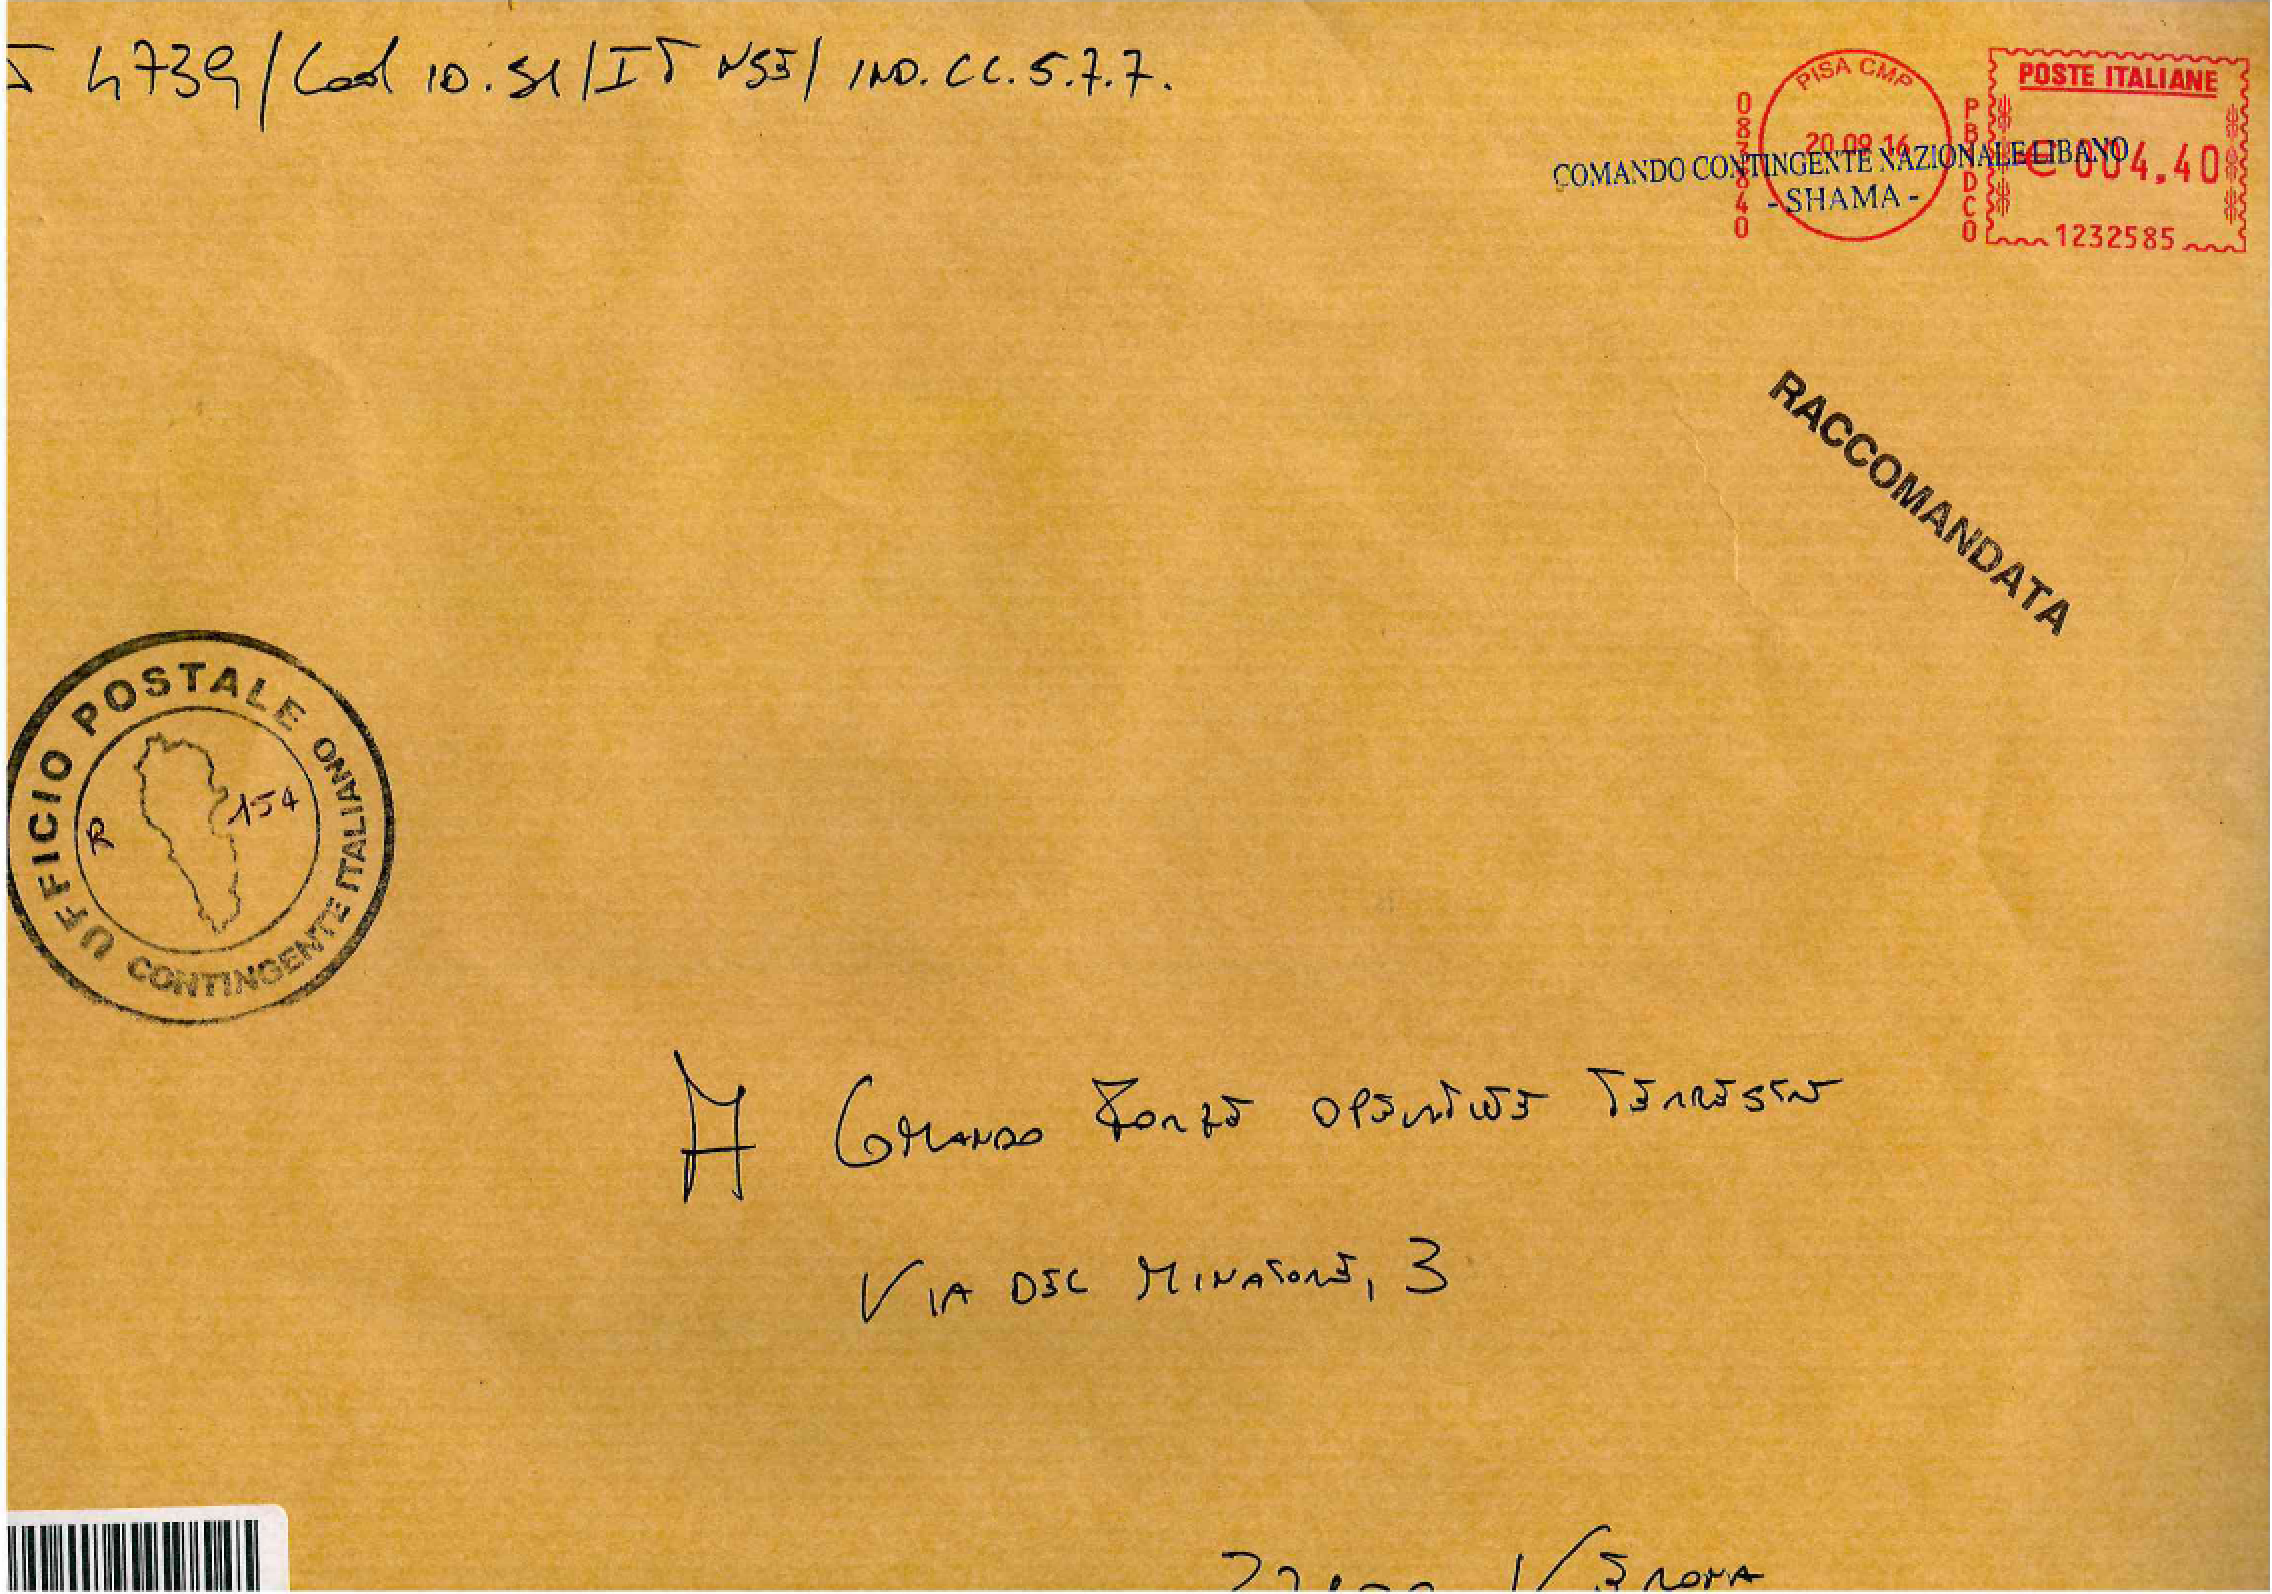 4739/Cod ID.SE/IT NSE/ IND.CC.5.7.7.
PISA CMP
20.09.16
0838840
PBDDCO
POSTE ITALIANE
€ 004,40
1232585
COMANDO CONTINGENTE NAZIONALE LIBANO
- SHAMA -
RACCOMANDATA
UFFICIO POSTALE
CONTINGENTE ITALIANO
R 154
A COMANDO FORZE OPERATIVE TERRESTRI
VIA DEL MINATORE, 3
VERONA